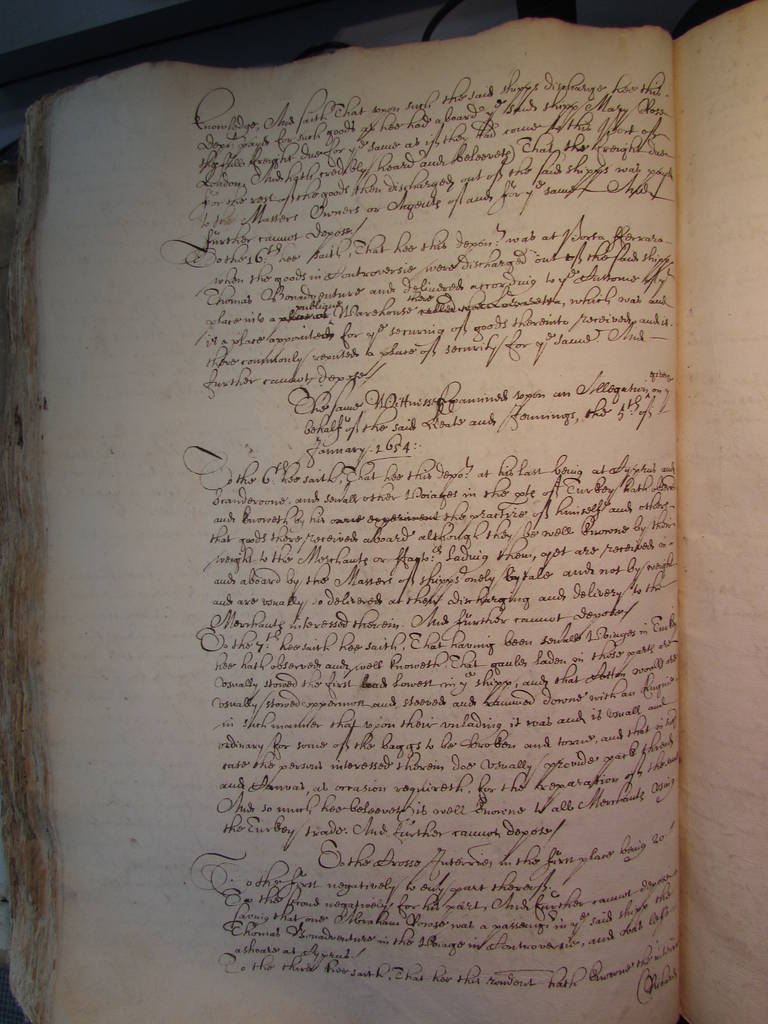 knowledge, And saith That upon such the said shipps discharge hee this
Depo:t payd for such goods as hee had aboard ye said shipp Mary Rose
the full freight due for ye same as if they had come to this Port of
London, And hath credibly heard and beleeveth That the freight due
for the rest of the goods then discharged out of the said shipps was payd
to the Masters Owners or Agents of and for ye same And
further cannot depose/
To the 16th hee saith, That hee this depon:t was at Porta Ferrara
when the goods in Controversie were discharged out of the said shipp
Thomas Bonadventure and delivered according to ye Custome of ye
place into a publique Warehouse there called ye Lazaretta, which was and
is a place appointed for ye securing of goods thereinto received, and is
there commonly reputed a place of security for ye same. And
further cannot depose/
The same Wittnesse Examined upon an Allegation given on ye
behalf of the said Keate and Jennings, the 5th of
January. 1654:
To the 6th hee saith, That hee this depo:t at his last being at Cyprus and
Scanderoone, and severall other Voiages in the pte of Turkey hath observed
and knoweth by his owne experiment the practice of himselfe and others
that goods there received aboard although they be well knowne by their
weight to the Merchants or Facto:rs lading them, yet are received in
and aboard by the Masters of shipps onely by tale and not by weight
and are usually so delivered at their discharging and delivery to the
Merchants Interessed therein. And further cannot depose/
To the 7th hee saith hee saith, That having been severall Voiages in Turkey
hee hath observed and well knoweth That gaules laden in those parts are
usually stowed the first and lowest in ye shipp, and that Cotton wooll are
usually stowed uppermost and steeved and rammed downe with an Engine
in such manner that upon their unlading it was and is usuall and
ordinary for some of the baggs to be broken and torne, and that in such
case the persons interessed therein doe usually provide pack thread
and Canvas, as occasion requireth, for the reparation of them
And so much hee beleeveth is well knowne to all Merchants using
the Turkey trade. And further cannot depose/
To the Crosse Interries, in the first place being to
To the first negatively to every part thereof.
To the second negatively for his part, And further cannot depose
saving that one Abraham Roose was a passeng:r in ye said shipp the
Thomas Bonadventure in the Voiage in Controversie, and was left
ashoare at Cyprus.
To the third hee saith, That hee this rendent hath knowne the